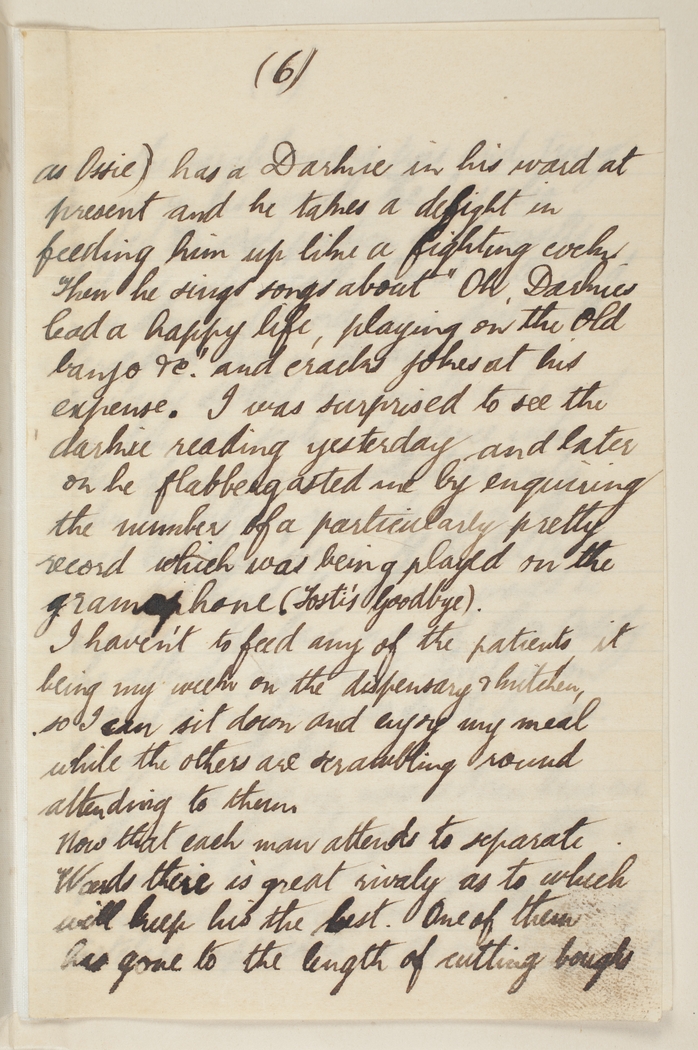 (6)
as Ossie) has a Darkie in his ward at
present and he takes a delight in
feeding him up like a fighting cock.
Then he sings songs about "Oh, Darkies
lead a happy life, playing on the old
banjo &c." and cracks jokes at his
expense. I was surprised to see the
darkie reading yesterday and later
on he flabbergasted me by enquiring
the number of a particularly pretty
record which was being played on the
gramophone (Tosti's Goodbye).
I haven't to feed any of the patients, it
being my week on the dispensary & kitchen,
so I can sit down and enjoy my meal
while the others are scrambling round
attending to them
Now that each man attends to separate
Wards there is great rivaly as to which
will keep his the best. One of them
has gone to the length of cutting boughs